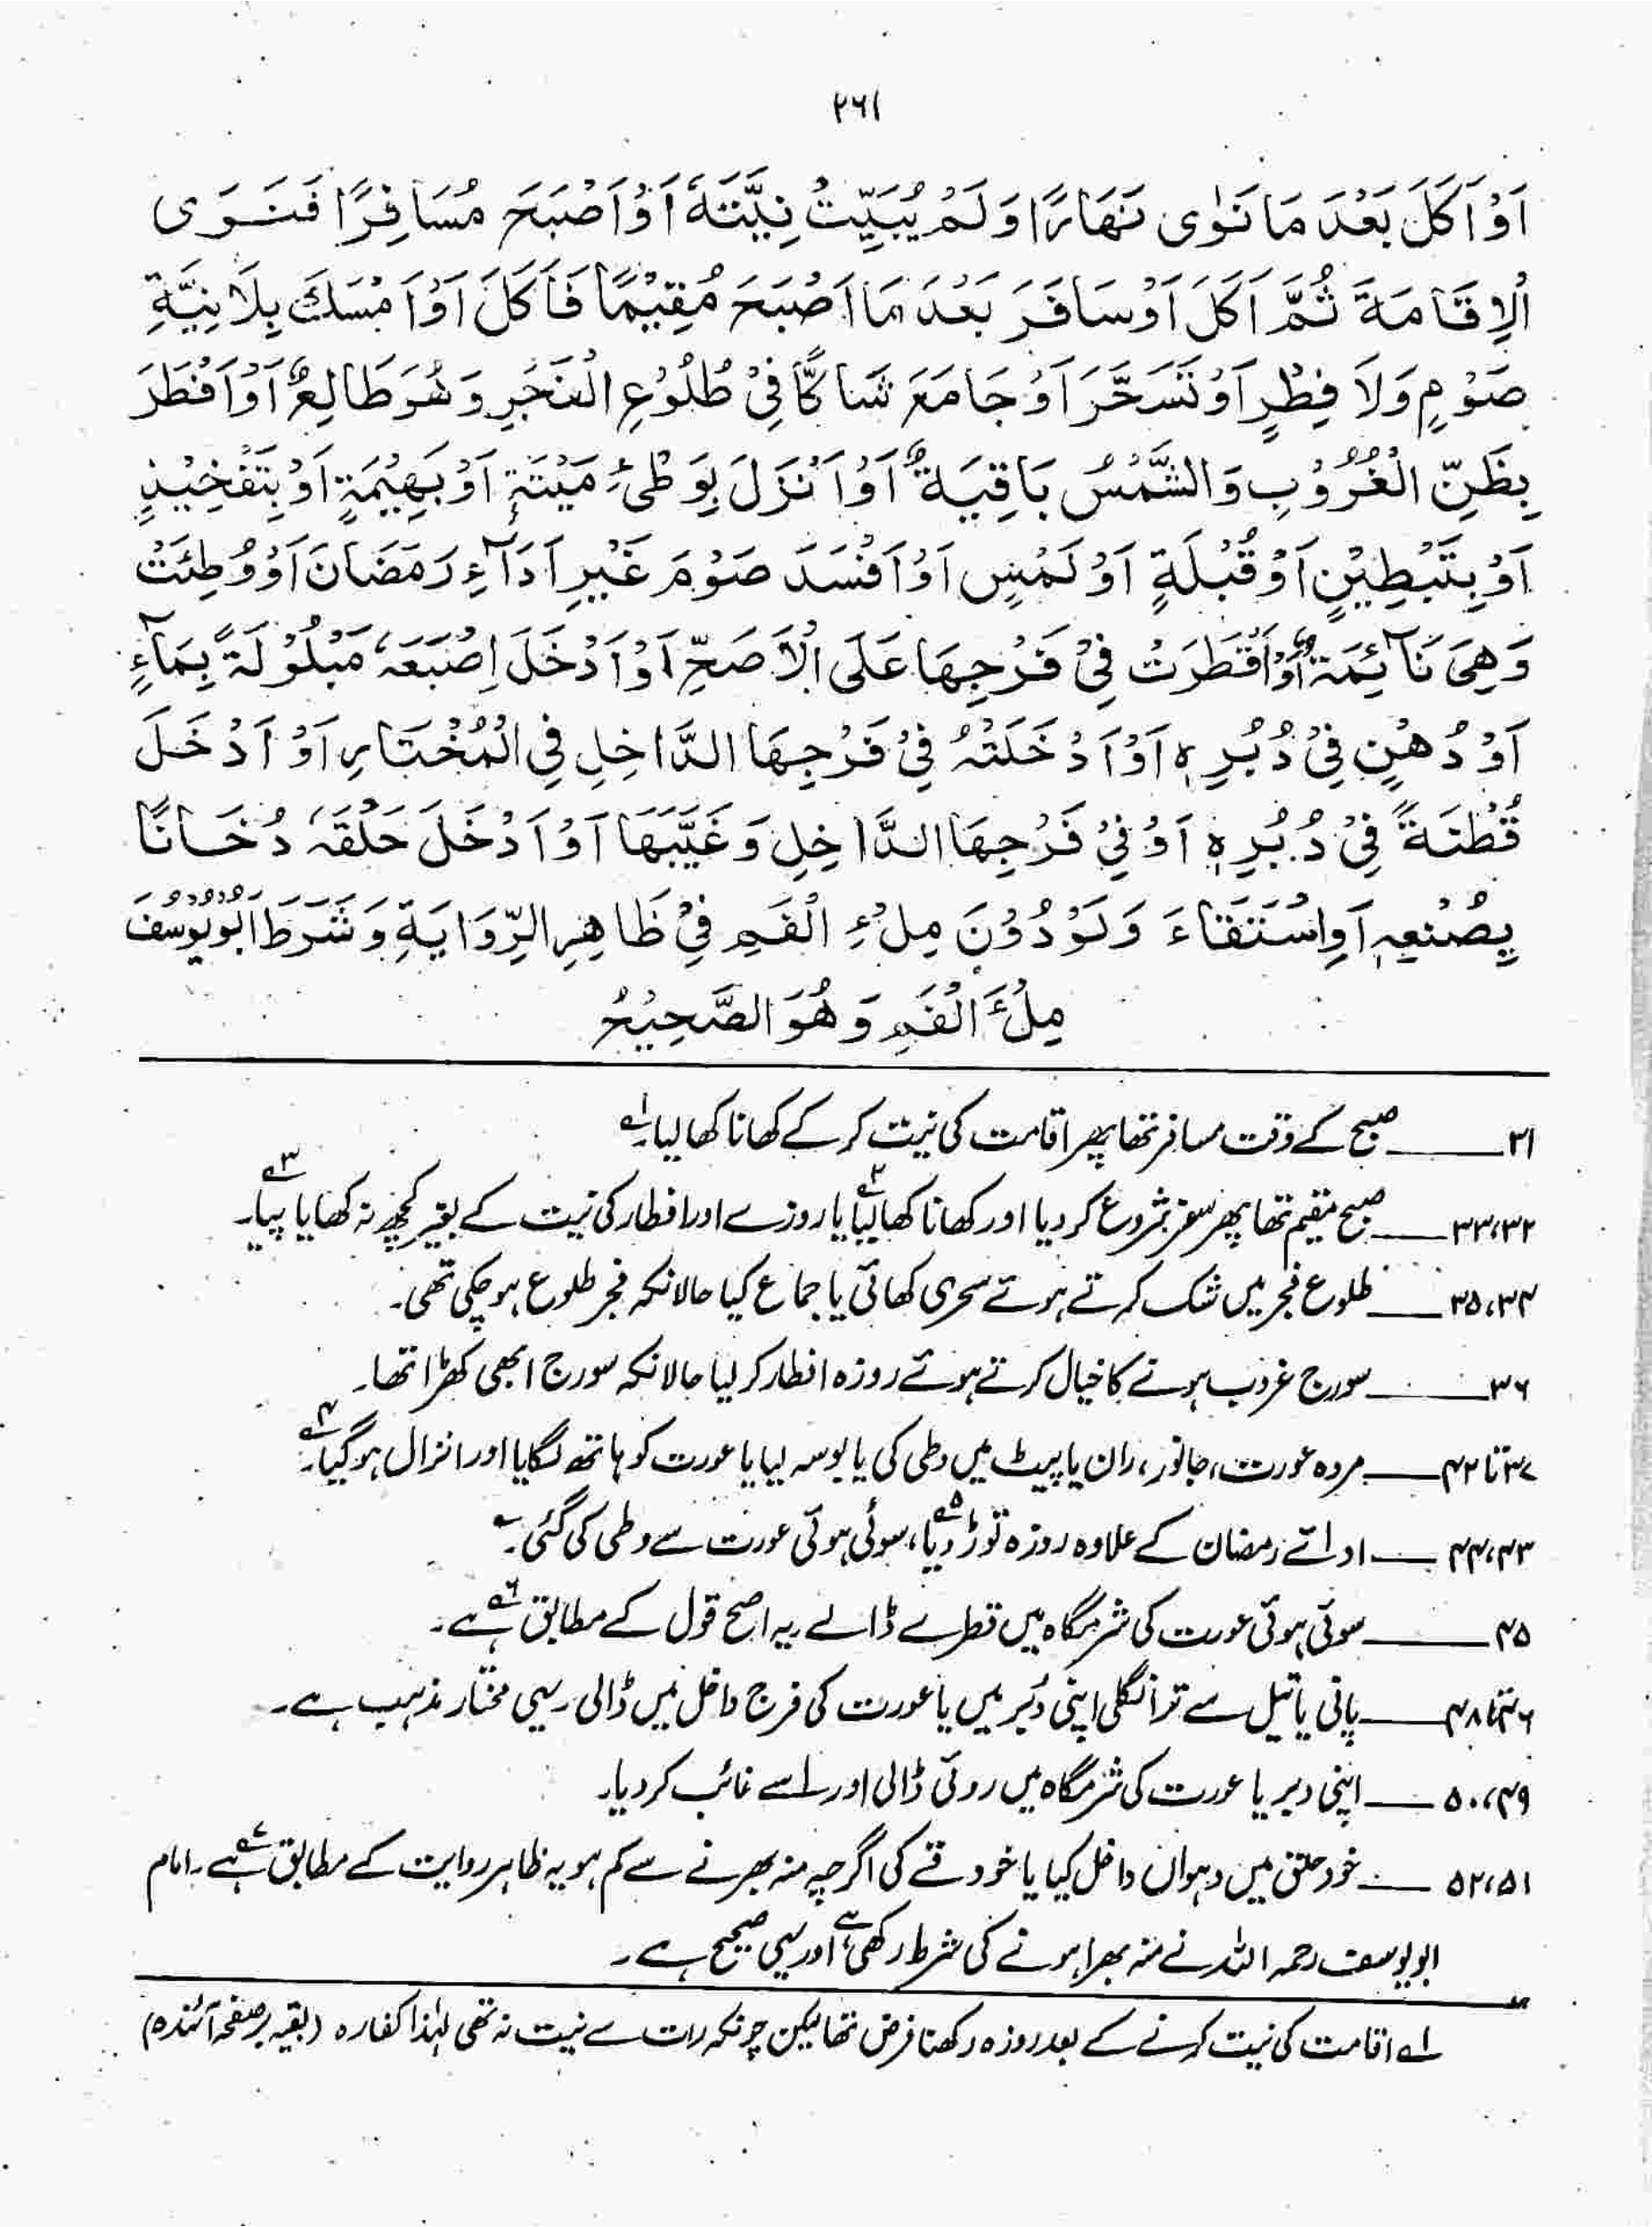 ۲۶۱
اَوْ اَكَلَ بَعْدَ مَا نَوٰى نَهَارًا وَلَمْ يُبَيِّتْ نِيَّتَهٗ اَوْ اَصْبَحَ مُسَافِرًا فَنَوَى
الْاِقَامَةَ ثُمَّ اَكَلَ اَوْ سَافَرَ بَعْدَ مَا اَصْبَحَ مُقِيْمًا فَاَكَلَ اَوْ اَمْسَكَ بِلَا نِيَّةِ
صَوْمٍ وَلَا فِطْرٍ اَوْ تَسَحَّرَ اَوْ جَامَعَ شَاكًّا فِيْ طُلُوْعِ الْفَجْرِ وَهُوَ طَالِعٌ اَوْ اَفْطَرَ
بِظَنِّ الْغُرُوْبِ وَالشَّمْسُ بَاقِيَةٌ اَوْ اَنْزَلَ بِوَطْئِ مَيْتَةٍ اَوْ بَهِيْمَةٍ اَوْ بِتَفْخِيْذٍ
اَوْ بِتَبْطِيْنٍ اَوْ قُبْلَةٍ اَوْ لَمْسٍ اَوْ اَفْسَدَ صَوْمَ غَيْرِ اَدَآءِ رَمَضَانَ اَوْ وُطِئَتْ
وَهِيَ نَآئِمَةٌ اَوْ اَقْطَرَتْ فِيْ فَرْجِهَا عَلَى الْاَصَحِّ اَوْ اَدْخَلَ اِصْبَعَهٗ مَبْلُوْلَةً بِمَآءٍ
اَوْ دُهْنٍ فِيْ دُبُرِهٖ اَوْ اَدْخَلَتْهُ فِيْ فَرْجِهَا الدَّاخِلِ فِي الْمُخْتَارِ اَوْ اَدْخَلَ
قُطْنَةً فِيْ دُبُرِهٖ اَوْ فِيْ فَرْجِهَا الدَّاخِلِ وَغَيَّبَهَا اَوْ اَدْخَلَ حَلْقَهٗ دُخَانًا
بِصُنْعِهٖ اَوِ اسْتَقَاءَ وَلَوْ دُوْنَ مِلْءِ الْفَمِ فِيْ ظَاهِرِ الرِّوَايَةِ وَشَرَطَ اَبُوْ يُوْسُفَ
مِلْءَ الْفَمِ وَهُوَ الصَّحِيْحُ
۳۱ــــــ صبح کے وقت مسافر تھا پھر اقامت کی نیت کر کے کھانا کھا لیا۔ ۱ے
۳۳،۳۲ــــــ صبح مقیم تھا پھر سفر شروع کر دیا اور کھانا کھا لیا ۲ے یا روزے اور افطار کی نیت کے بغیر کچھ نہ کھایا پیا۔ ۳ے
۳۵،۳۴ــــــ طلوع فجر میں شک کرتے ہوئے سحری کھائی یا جماع کیا حالانکہ فجر طلوع ہو چکی تھی۔
۳۶ــــــ سورج غروب ہونے کا خیال کرتے ہوئے روزہ افطار کر لیا حالانکہ سورج ابھی کھڑا تھا۔
۳۷ تا ۴۲ــــــ مردہ عورت، جانور، ران یا پیٹ میں وطی کی یا بوسہ لیا یا عورت کو ہاتھ لگایا اور انزال ہو گیا۔ ۴ے
۴۴،۴۳ــــــ ادائے رمضان کے علاوہ روزہ توڑ دیا ۵ے، سوئی ہوئی عورت سے وطی کی گئی۔
۴۵ــــــ سوئی ہوئی عورت کی شرمگاہ میں قطرے ڈالے یہ اصح قول کے مطابق ۶ے ہے۔
۴۶ تا ۴۸ــــــ پانی یا تیل سے تر انگلی اپنی دُبر میں یا عورت کی فرج داخل میں ڈالی یہی مختار مذہب ہے۔
۵۰،۴۹ــــــ اپنی دبر یا عورت کی شرمگاہ میں روئی ڈالی اور اسے غائب کر دیا۔
۵۲،۵۱ــــــ خود حلق میں دھواں داخل کیا یا خود قے کی اگرچہ منہ بھرنے سے کم ہو یہ ظاہر روایت کے مطابق ۷ے ہے۔ امام
ابو یوسف رحمہ اللہ نے منہ بھرا ہونے کی شرط رکھی ہے اور یہی صحیح ہے۔
۱ے اقامت کی نیت کرنے کے بعد روزہ رکھنا فرض تھا لیکن چونکہ رات سے نیت نہ تھی لہٰذا کفارہ (بقیہ بر صفحہ آئندہ)